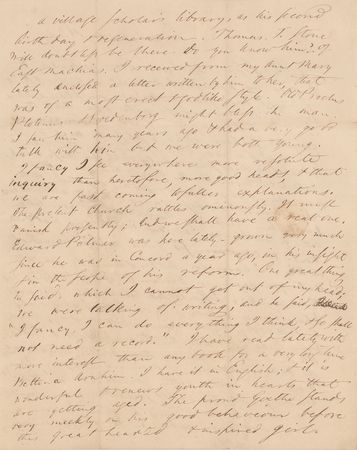 a village scholar's library, as his second
birth day & regeneration. Thomas T. Stone
will doubtless be there. Do you know him? of
East Machias. I received from my Aunt Mary
lately enclosed a letter written by him to her, that
was of a most erect & godlike style.
Plotinus & Swedenborg might bless the man.
I saw him many years ago & had a very good
talk with him but we were both young.
I fancy I see everywhere more resolute
inquiry than heretofore, more good heads, & that
we are fast coming to fuller explanations.
The present church rattles ominously. It must
vanish presently; & we shall have a real one.
Edward Palmer was here lately - grown very much
since he was in Concord a year ago, in his insight
& in the scope of his reforms. One great thing
he said, which I cannot get out of my head;
we were talking of writing, and he said,
"I fancy, I can do everything I think, & so shall
not need a record." I have read lately with
more interest than any book for a very long time
Bettina Arnim. I have it in English, & it is
wonderful & renews youth in hearts that
are getting aged. The proud Goethe stands
very meekly on his good behaviour before
this great hearted & inspired girl.